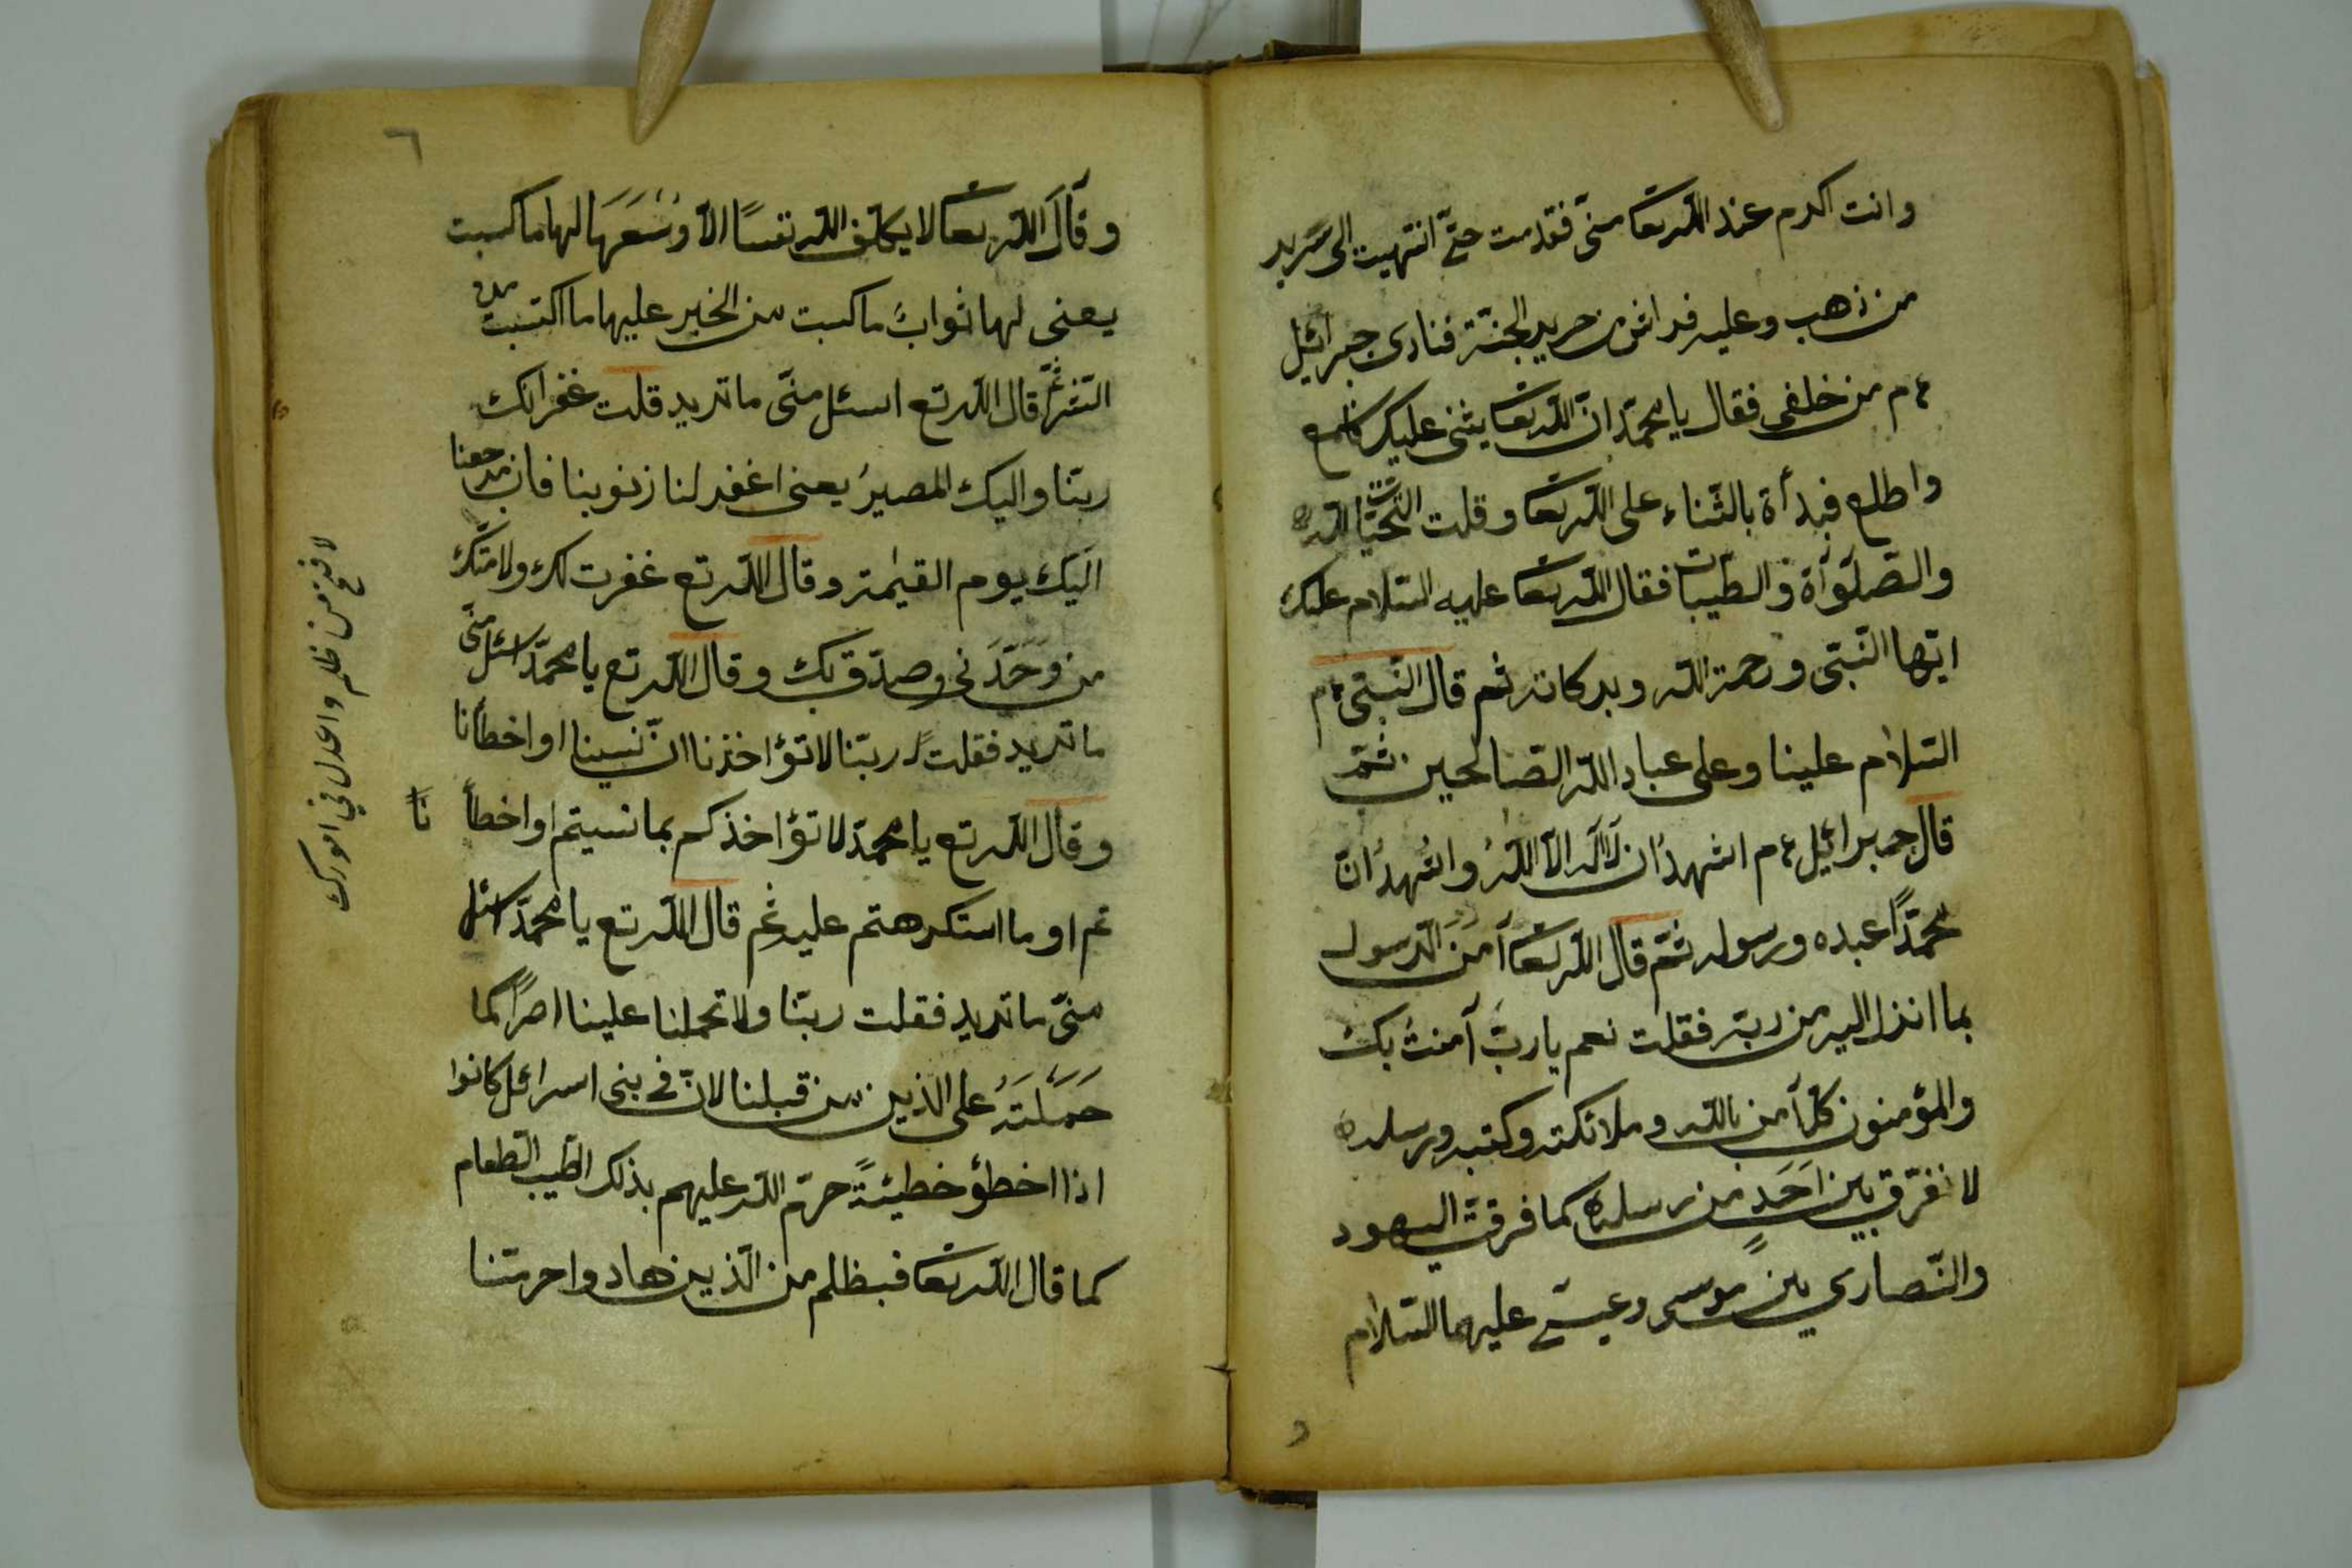 وانت اكرم عند الله تعا منّى فقدمت حتّى انتهيت الى سرير
من ذهب وعليه فراش من حرير الجنّة فنادى جبرائيل
ع م من خلفى فقال يا محمّد انّ الله تعا يثنى عليك فاسمع
واطلع فبدأة بالثّناء على الله تعا وقلت التّحيّات لله
والصّلوآة والطّيبات فقال الله تعا عليه السّلام عليك
ايّها النّبىّ ورحمة الله وبركاته ثم قال النّبىّ ع م
السّلام علينا وعلى عباد الله الصّالحين ثمّ
قال جبرائيل ع م اشهد ان لآ اله الاّ الله واشهد انّ
محمّدًا عبده ورسوله ثمّ قال الله تعا آمَنَ الرّسول
بما انزل اليه من ربّه فقلت نعم يا ربّ آمنتُ بك
والمؤمنون كلّ آمن بالله وملائكته وكتبه ورسله
لا نفرّق بين اَحَدٍ من رسله كما فرقت اليهود
والنّصارى بين موسى وعيسى عليهما السّلام
٦
وقَالَ الله تعا لا يكلّف الله نفسًا الاّ وُسْعَهَا لها ما كسبت
يعنى لها ثوابُ ما كسبت من الخير عليها ما اكتسبت من
الشّر ثمّ قال الله تع اسئل منّى ما تريد قلت غفرانك
ربّنا واليك المصيرُ يعنى اغفر لنا زنوبنا فان مرجعنا
اليك يوم القيٰمة وقال الله تع غفرت لك ولامّتك
من وَحَّدَنى وصدّق بك وقال الله تع يا محمّد اسئل منّى
ما تريد فقلت ربّنا لا تؤاخذنا انّ نسينا او اخطأنا
وقال الله تع يا محمّد لا تؤاخذكم بما نسيتم او اخطأ
تم او ما استكرهتم عليه ثم قال الله تع يا محمّد اسئل
منّى ما تريد فقلت ربّنا ولا تحملنا علينا اصرًا كما
حَمَلْتَهُ على الذين من قبلنا لانّ فى بنى اسرائل كانوا
اذا اخطؤ خطيئةً حرّم الله عليهم بذلك الطّيب الطّعام
كما قال الله تعا فبظلم من الّذين هادوا حرمتنا
نا
من ظلم واعدل فى امورك